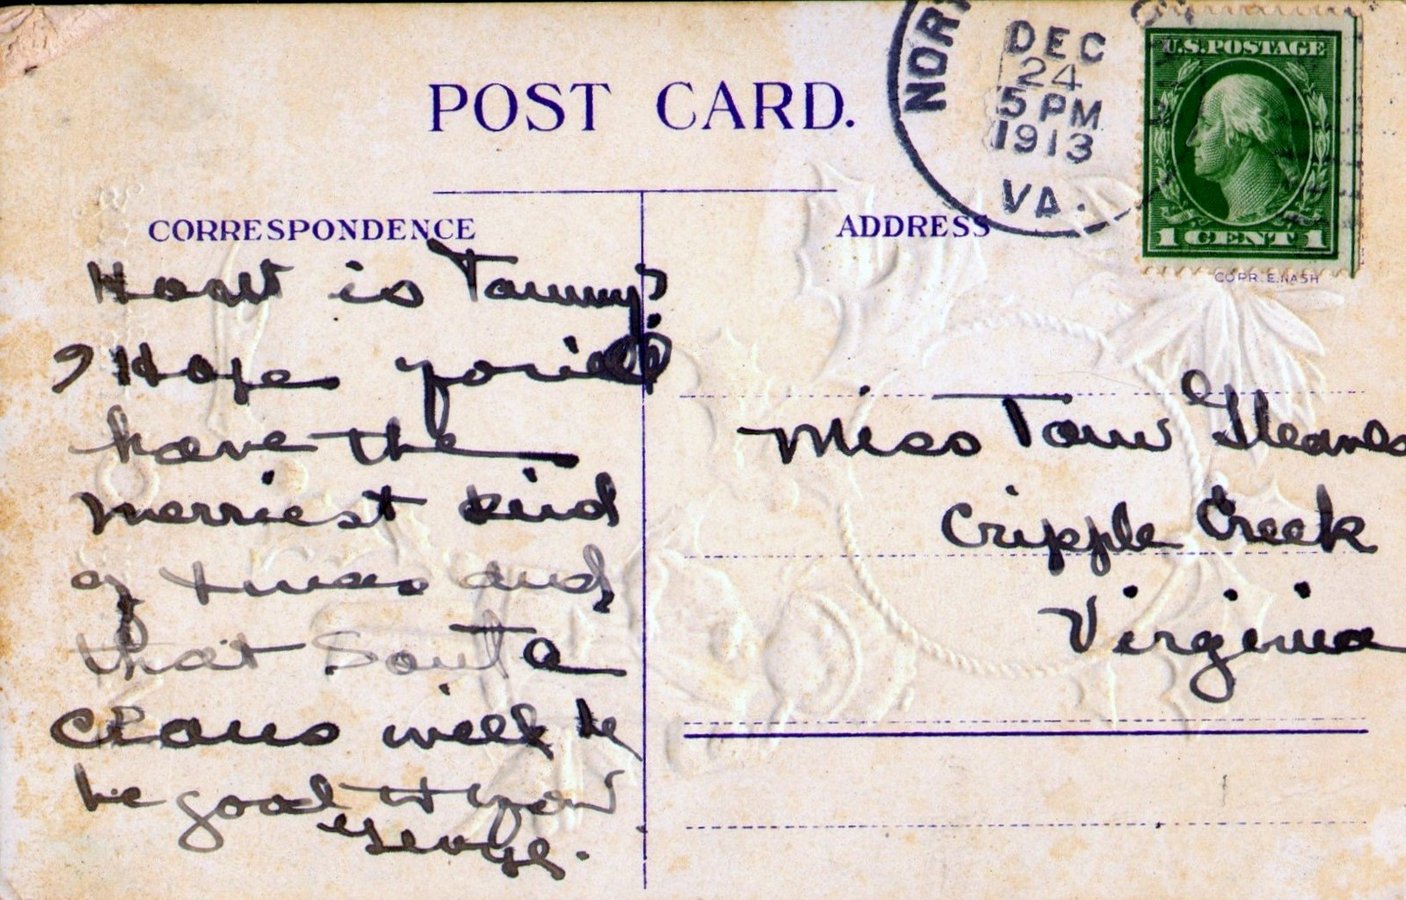 POST CARD.
NOR
DEC
24
5 PM
1913
VA.
U.S. POSTAGE
1 CENT 1
COPR. E. NASH
CORRESPONDENCE
ADDRESS
is Tommy?
I Hope you
have the
merriest kind
of xmas and
that Santa
Claus will be
be good to you
George.
Miss Tom
Cripple Creek
Virginia